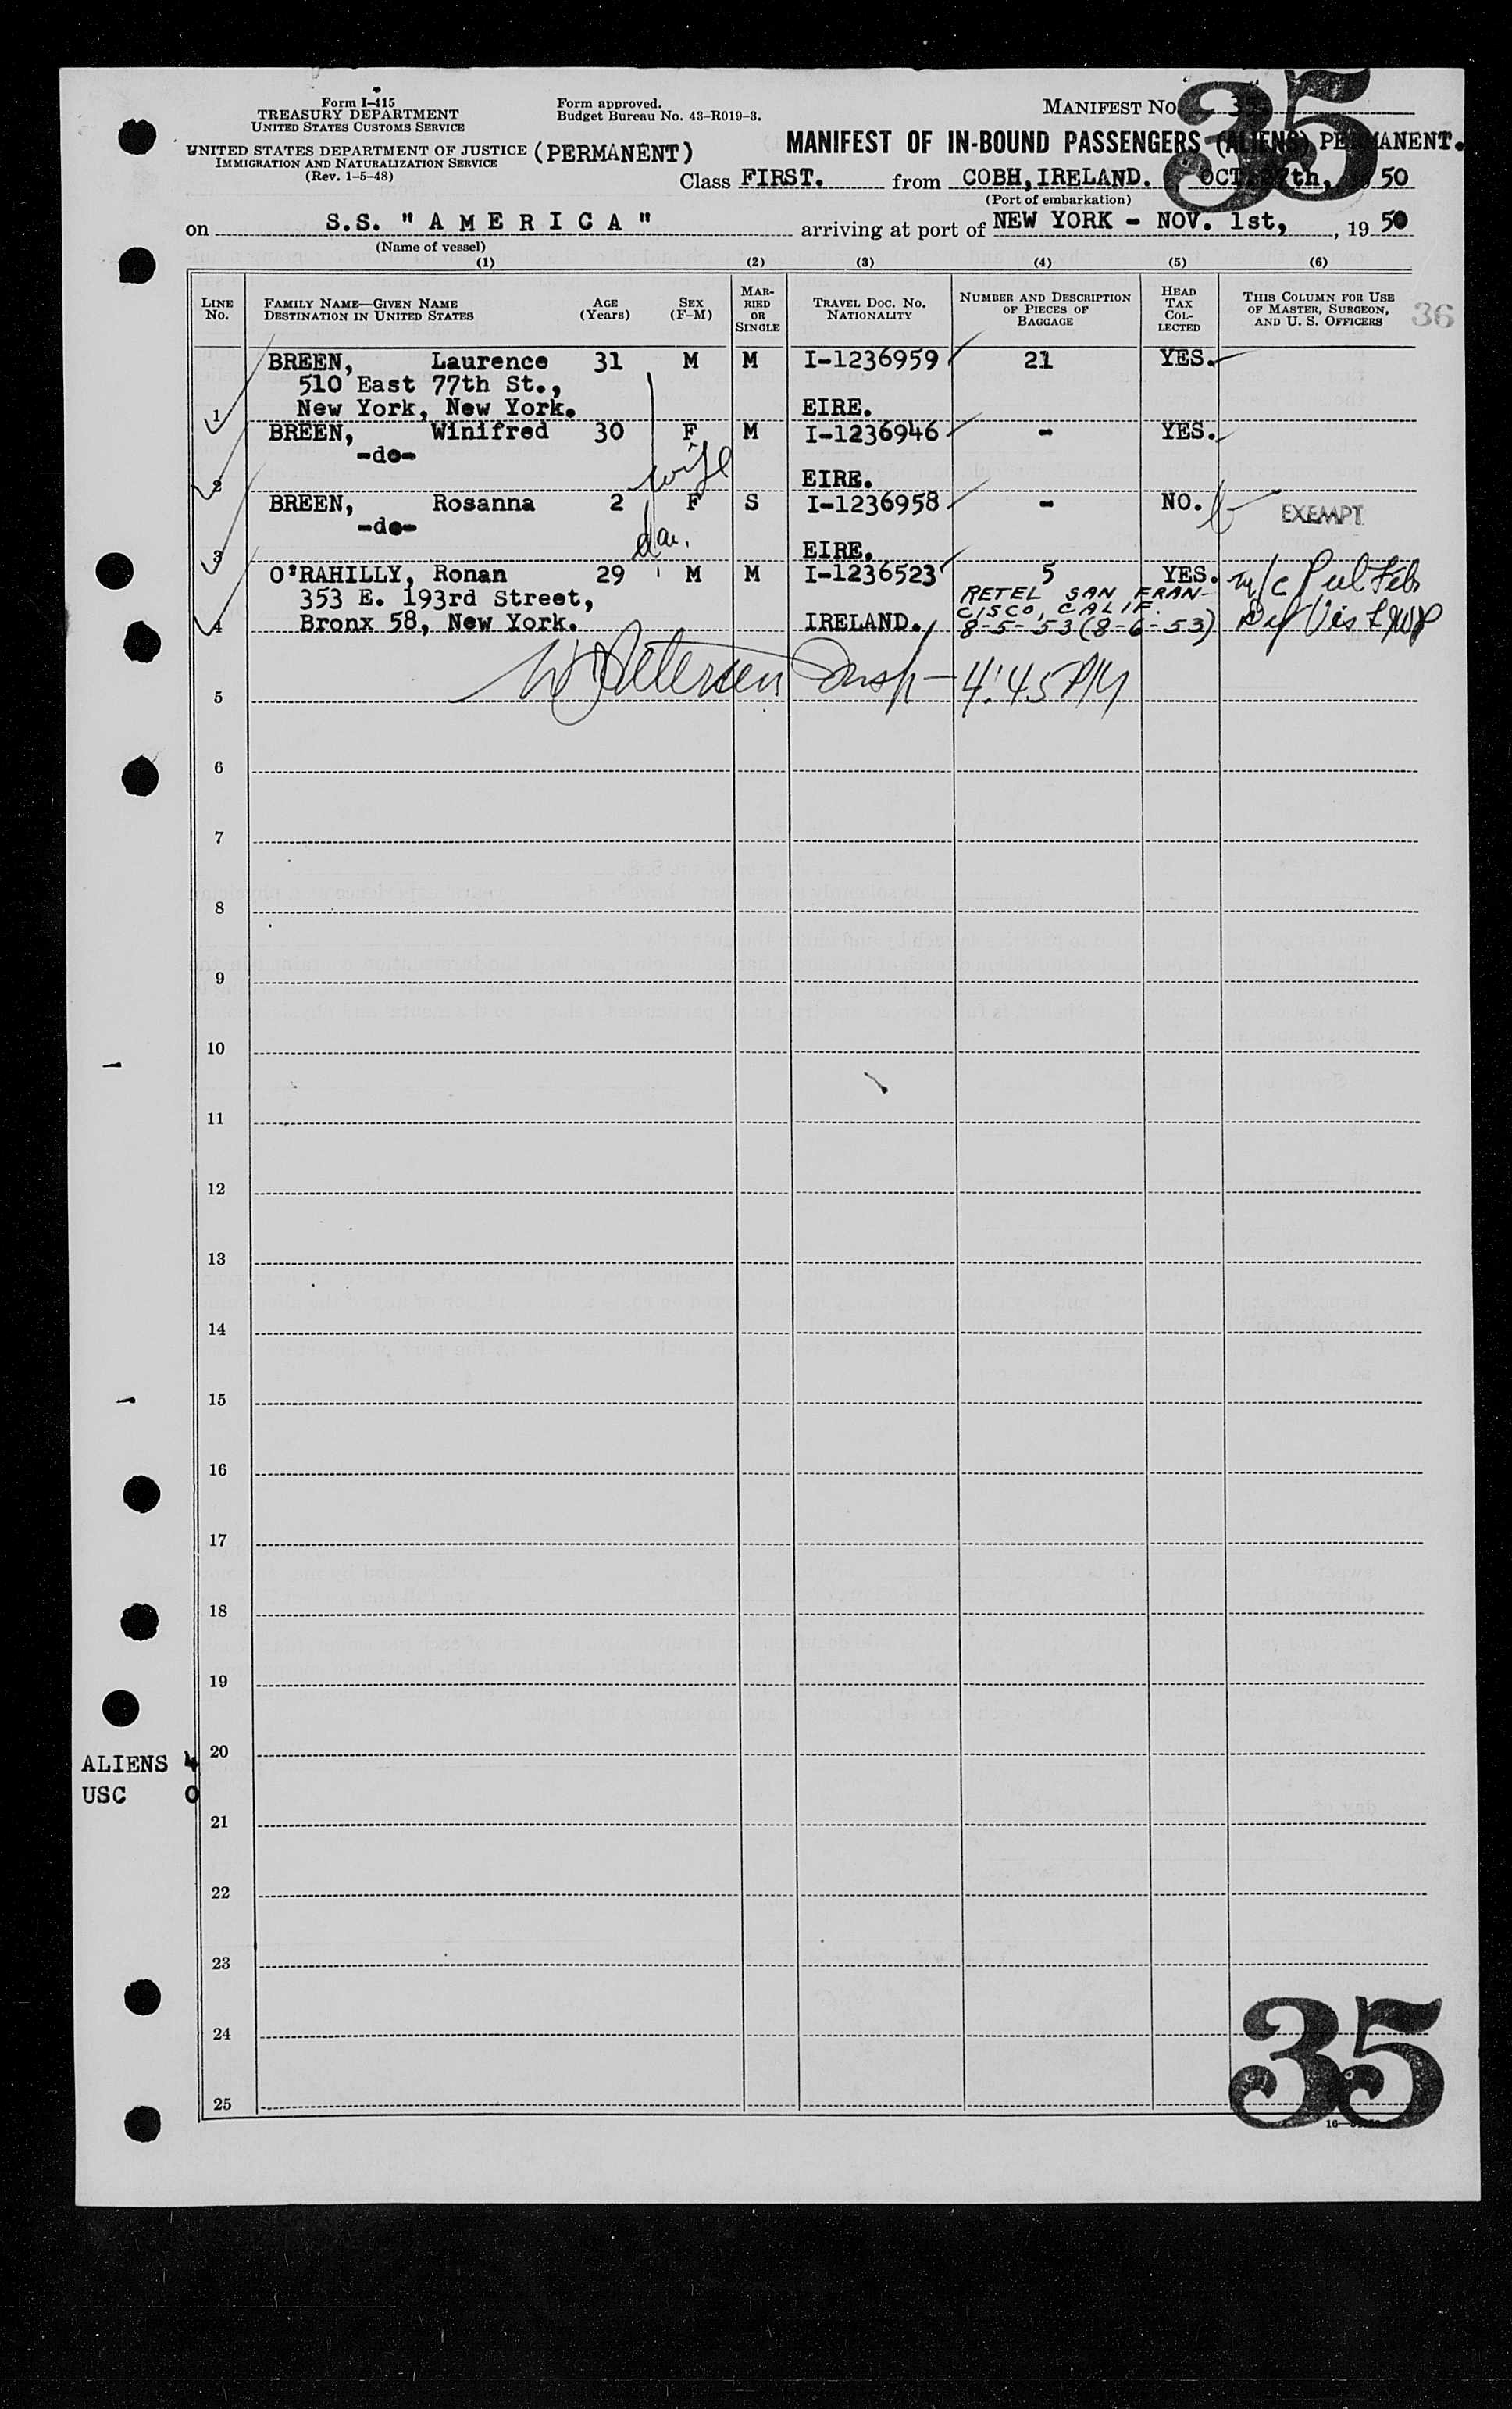 Form I-415
TREASURY DEPARTMENT
UNITED STATES CUSTOMS SERVICE
UNITED STATES DEPARTMENT OF JUSTICE (PERMANENT)
IMMIGRATION AND NATURALIZATION SERVICE
(Rev. 1-5-48)
Form approved.
Budget Bureau No. 43-R019-3.
MANIFEST NO. 35
35
MANIFEST OF IN-BOUND PASSENGERS (ALIENS) PERMANENT.
Class FIRST. from COBH, IRELAND. OCT. 27th, 50
(Port of embarkation)
on S.S. "AMERICA" arriving at port of NEW YORK - NOV. 1st, , 19 50
(Name of vessel)
(1) (2) (3) (4) (5) (6)
LINE No. FAMILY NAME—GIVEN NAME DESTINATION IN UNITED STATES AGE (Years) SEX (F-M) MARRIED OR SINGLE TRAVEL DOC. NO. NATIONALITY NUMBER AND DESCRIPTION OF PIECES OF BAGGAGE HEAD TAX COLLECTED THIS COLUMN FOR USE OF MASTER, SURGEON, AND U. S. OFFICERS
36
BREEN, Laurence 31 M M I-1236959 21 YES.
510 East 77th St.,
1 New York, New York. EIRE.
BREEN, Winifred 30 F M I-1236946 - YES.
-do-
wife
2 EIRE.
BREEN, Rosanna 2 F S I-1236958 - NO. EXEMPT
-do-
dau.
3 EIRE.
O'RAHILLY, Ronan 29 M M I-1236523 5 YES.
353 E. 193rd Street, RETEL SAN FRAN-
CISCO, CALIF.
4 Bronx 58, New York. IRELAND. 8-5-53 (8-6-53)
W Petersen Insp - 4:45 PM
5
6
7
8
9
10
11
12
13
14
15
16
17
18
19
ALIENS 4 20
USC 0
21
22
23
24
25
35